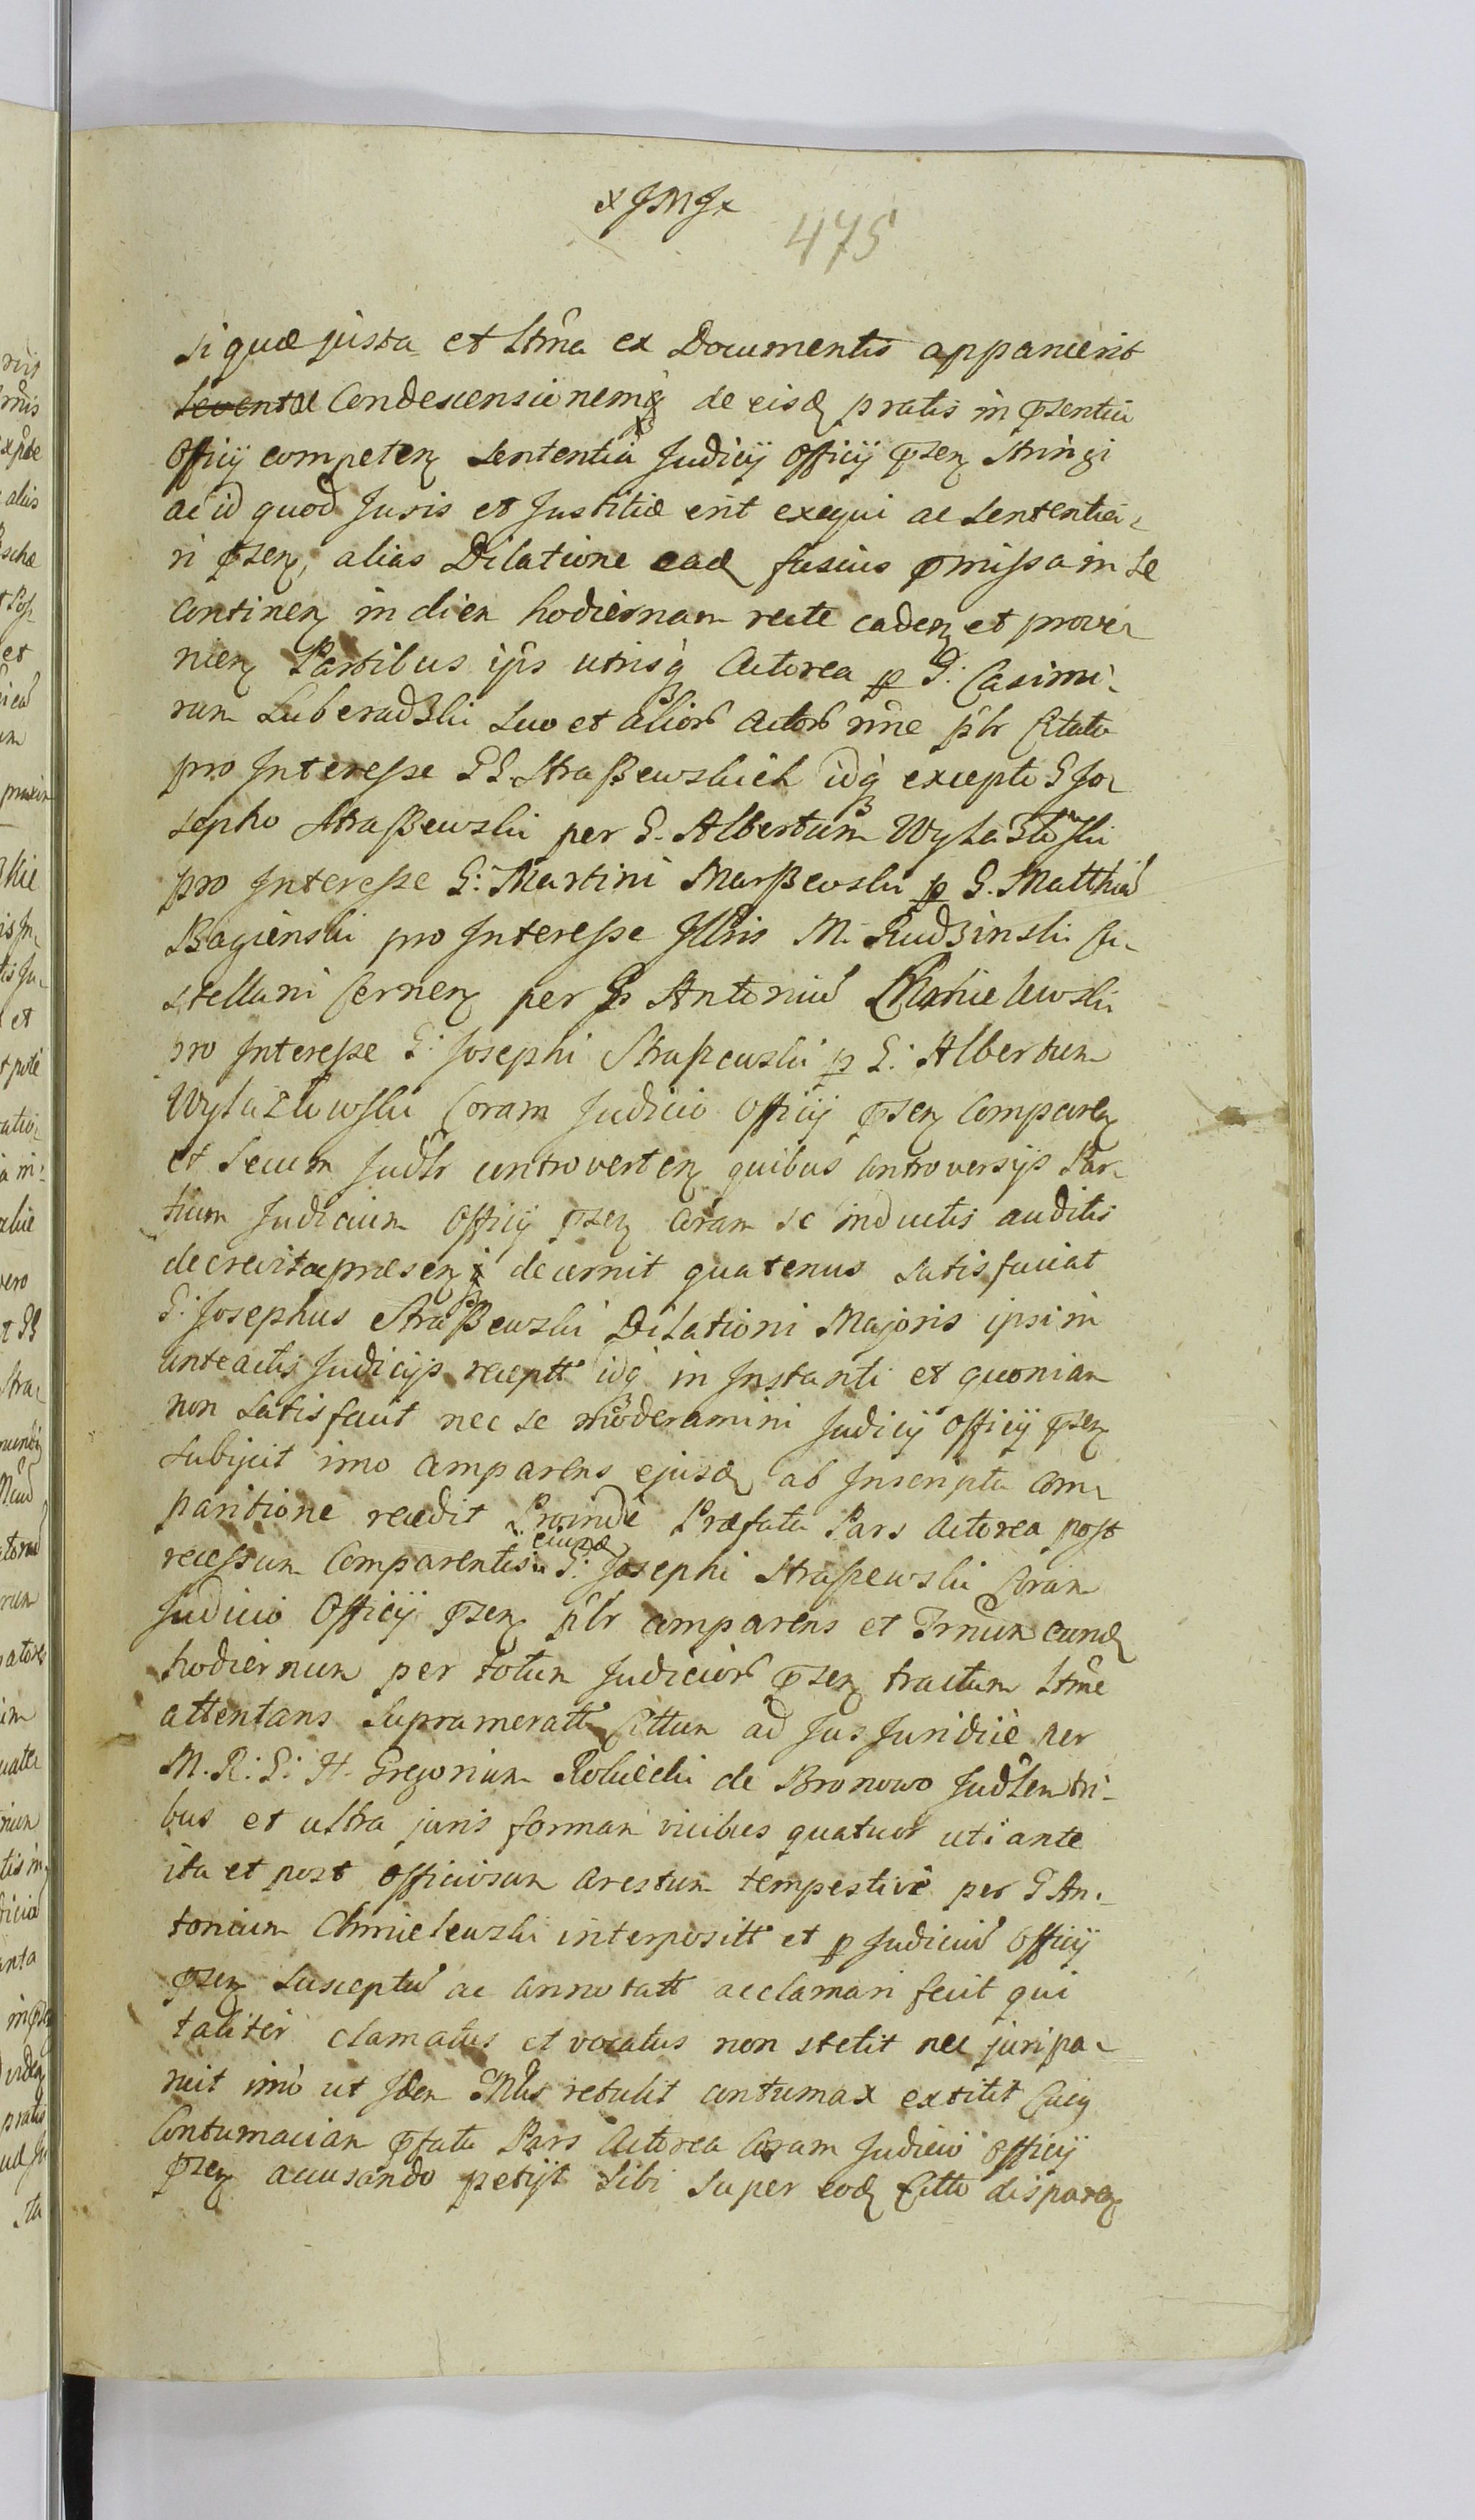 x JMJ x
475
si quæ justa et ltma ex Documentis apparuerit
seventæ Condescensionemq de eisd pratis in psentia
Officÿ competen sententia Judicÿ Officÿ psen stringi
ac id quod Juris et Justitiæ erit exequi ac sententia-
ri psen, alias Dilatione ead fusius pmissa in se
continen in diem hodiernam recte caden et prove-
nien Partibus ipis utrisq Actorea p G. Casimi-
rum Luberadzki suo et alior Actor nne plr Citata
pro Interesse GG Straszewskich idq excepto G Jo-
sepho Straszewski per G. Albertum Wyłazłowski
pro Interesse G. Martini Marszewski p G. Matthiã
Bagienski pro Interesse Illris M. Rudzinski Ca-
stellani Cernen per G Antoniũ Chmielewski
pro Interesse G. Josephi Straszewski p G. Albertum
Wyłazłowski Coram Judicio Officÿ psen Comparen
et secum Judlr controverten quibus controversÿs Par-
tium Judicium Officÿ psen coram se inductis auditis
decrevit præsen decernit quatenus satisfaciat
G. Josephus Straszewski Dilationi Majoris ipsi in
anteactis Judicÿs receptt idq in Instanti et quoniam
non satisfecit nec se moderamini Judicÿ Officÿ psen
subjicit imo comparens ejusd ab Inscripta com-
paritione recedit Proinde Præfata Pars Actorea post
recessum Comparentis eiusd G. Josephi Straszewski Coram
Judicio Officÿ psen plr comparens et Trnum eund
hodiernum per totum Judicior psen tractum ltme
attentans suprameratt Cittum ad Jus Juridice per
M. R. G. H. Gregorium Robiecki de Bronowo Judlem tri-
bus et ultra juris formam vicibus quatuor uti ante
ita et post officiosum Arestum tempestive per G An-
tonium Chmielewski interpositt et p Judiciũ Officÿ
psen susceptũ ac annotatt acclamari fecit qui
taliter clamatus et vocatus non stetit nec juri pa-
ruit imo ut Idem Mlis retulit contumax extitit Cujq
Contumaciam pfata Pars Actorea Coram Judicio Officÿ
psen accusando petÿt sibi super eod Citto disparen